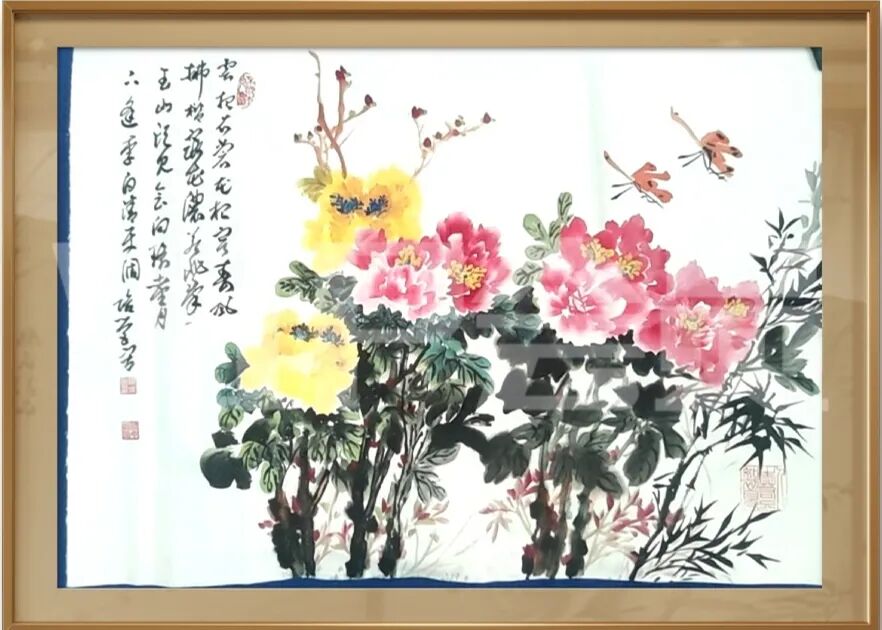 雲想衣裳花想容春风
拂槛露花濃若非羣
玉山头见会向瑶臺月
下逢李白清平调